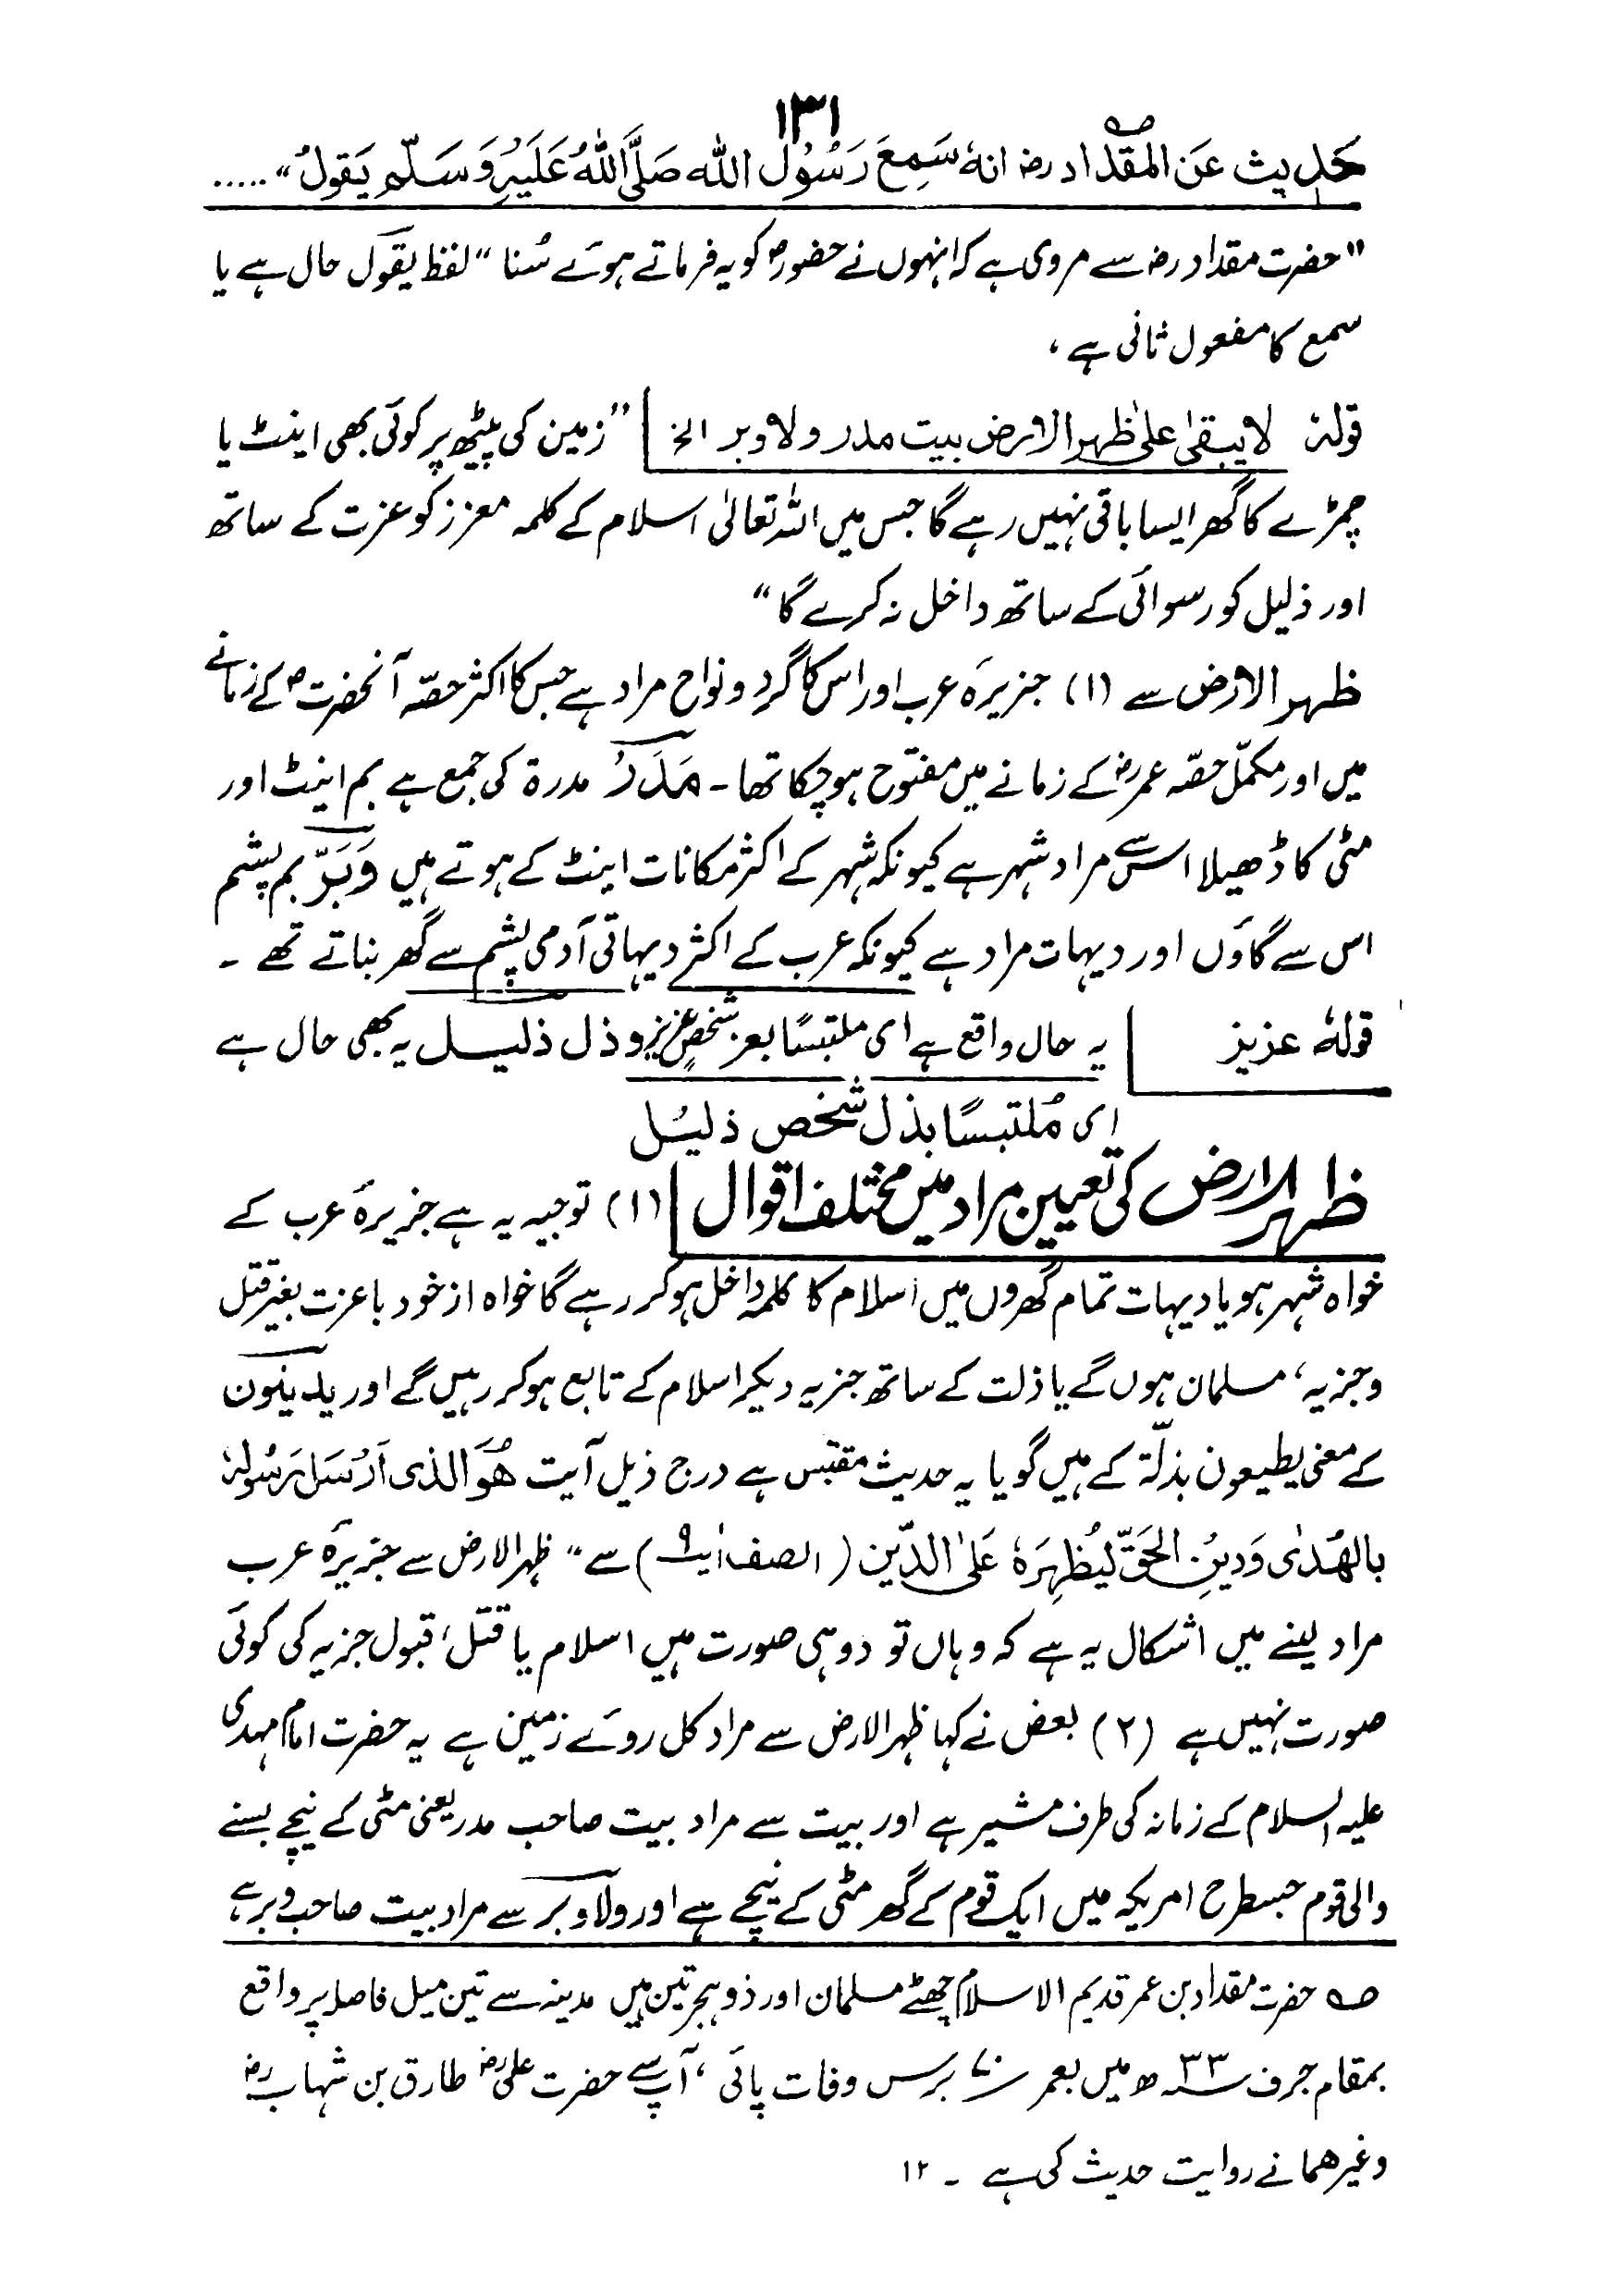 ۱۳۱
حدیث عَن المقداد رض انهٗ سَمِعَ رَسُوْل الله صَلَّی اللّٰهُ عَلَیْهِ وَسَلّم یَقولُ“ .....
”حضرت مقداد رض سے مروی ہے کہ انہوں نے حضورؐ کو یہ فرماتے ہوئے سُنا “ لفظ یقول حال ہے یا
سمع کا مفعول ثانی ہے ،
قولهٗ لا یبقیٰ علیٰ ظهر الارض بیت مدر ولا وبر الخ ”زمین کی پیٹھ پر کوئی بھی اینٹ یا
چمڑے کا گھر ایسا باقی نہیں رہے گا جس میں اللہ تعالیٰ اسلام کے کلمہ معزز کو عزت کے ساتھ
اور ذلیل کو رسوائی کے ساتھ داخل نہ کرے گا “
ظہر الارض سے (۱) جزیرۂ عرب اور اس کا گرد و نواح مراد ہے جس کا اکثر حصّہ آنحضرتؐ کے زمانے
میں اور مکمّل حصّہ عمرؓ کے زمانے میں مفتوح ہو چکا تھا ۔ مَدَرٌ مدرۃ کی جمع ہے بم اینٹ اور
مٹی کا ڈھیلا اس سے مراد شہر ہے کیونکہ شہر کے اکثر مکانات اینٹ کے ہوتے ہیں وَبَرٌ بم پشم
اس سے گاؤں اور دیہات مراد ہے کیونکہ عرب کے اکثر دیہاتی آدمی پشم سے گھر بناتے تھے ۔
قولهٗ عزیز یہ حال واقع ہے ای ملتبسًا بعز شخصٍ عزیزٍ و ذل ذلیل یہ بھی حال ہے
ای مُلتبسًا بذل شخص ذلیل
ظہر الارض کی تعیین مراد میں مختلف اقوال (۱) توجیہ یہ ہے جزیرۂ عرب کے
خواہ شہر ہو یا دیہات تمام گھروں میں اسلام کا کلمہ داخل ہو کر رہے گا خواہ از خود باعزت بغیر قتل
و جزیہ ، مسلمان ہوں گے یا ذلت کے ساتھ جزیہ دیکر اسلام کے تابع ہو کر رہیں گے اور یدینون
کے معنی یطیعون بذلّۃ کے ہیں گویا یہ حدیث مقتبس ہے درج ذیل آیت هُوَ الذی اَرْسَلَ رَسُولهٗ
بالهُدٰی وَدِیْنِ الحَقّ لِیُظْهِرَهٗ عَلَی الدّین ( الصف آیت ۹ ) سے “ ظہر الارض سے جزیرۂ عرب
مراد لینے میں اشکال یہ ہے کہ وہاں تو دو ہی صورت ہیں اسلام یا قتل ، قبول جزیہ کی کوئی
صورت نہیں ہے (۲) بعض نے کہا ظہر الارض سے مراد کل روئے زمین ہے یہ حضرت امام مہدی
علیہ السلام کے زمانہ کی طرف مشیر ہے اور بیت سے مراد بیت صاحب مدر یعنی مٹی کے نیچے بسنے
والی قوم جسطرح امریکہ میں ایک قوم کے گھر مٹی کے نیچے ہے اور ولا وبر سے مراد بیت صاحب وبر ہے
ص حضرت مقداد بن عمر قدیم الاسلام چھٹے مسلمان اور ذو ہجرتین ہیں مدینہ سے تین میل فاصلہ پر واقع
بمقام جرف ۳۳ھ میں بعمر ۷۰ برس وفات پائی ، آپ سے حضرت علیؓ طارق بن شہابؓ
وغیرهما نے روایت حدیث کی ہے ۔ ۱۲